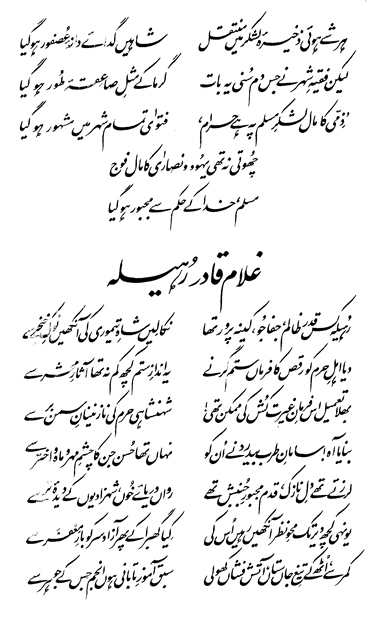 ہر شے ہوئی ذخیرۂ لشکر میں منتقل شاہیں گدائے دانۂ عصفور ہو گیا
لیکن فقیہِ شہر نے جس دم سُنی یہ بات گرما کے مثلِ صاعقۂ طور ہو گیا
'ذِمّی کا مال لشکرِ مسلم پہ ہے حرام'، فتویٰ تمام شہر میں مشہور ہو گیا
چھوتی نہ تھی یہود و نصاریٰ کا مال فوج
مسلم، خدا کے حکم سے مجبور ہو گیا
غلام قادر رُہیلہ
رُہیلہ کس قدر ظالم، جفا جُو، کینہ پرور تھا نکالیں شاہِ تیموری کی آنکھیں نوکِ خنجر سے
دیا اہلِ حرم کو رقص کا فرماں ستم گر نے یہ اندازِ ستم کچھ کم نہ تھا آثارِ محشر سے
بھلا تعمیل اس فرمانِ غیرت کُش کی ممکن تھی! شہنشاہی حرم کی نازنینانِ سمن بر سے
بنایا آہ! سامانِ طرب بیدرد نے اُن کو نہاں تھا حُسن جن کا چشمِ مہر و ماہ و اختر سے
لرزتے تھے دلِ نازک، قدم مجبورِ جنبش تھے رواں دریائے خُوں شہزادیوں کے دیدۂ تر سے
یونہی کچھ دیر تک محوِ نظر آنکھیں رہیں اُس کی کِیا گھبرا کے پھر آزاد سر کو بارِ مِغفر سے
کمر سے، اُٹھ کے تیغِ جاں ستاں، آتش فشاں کھولی سبق آموز تابانی ہوں انجم جس کے جوہر سے